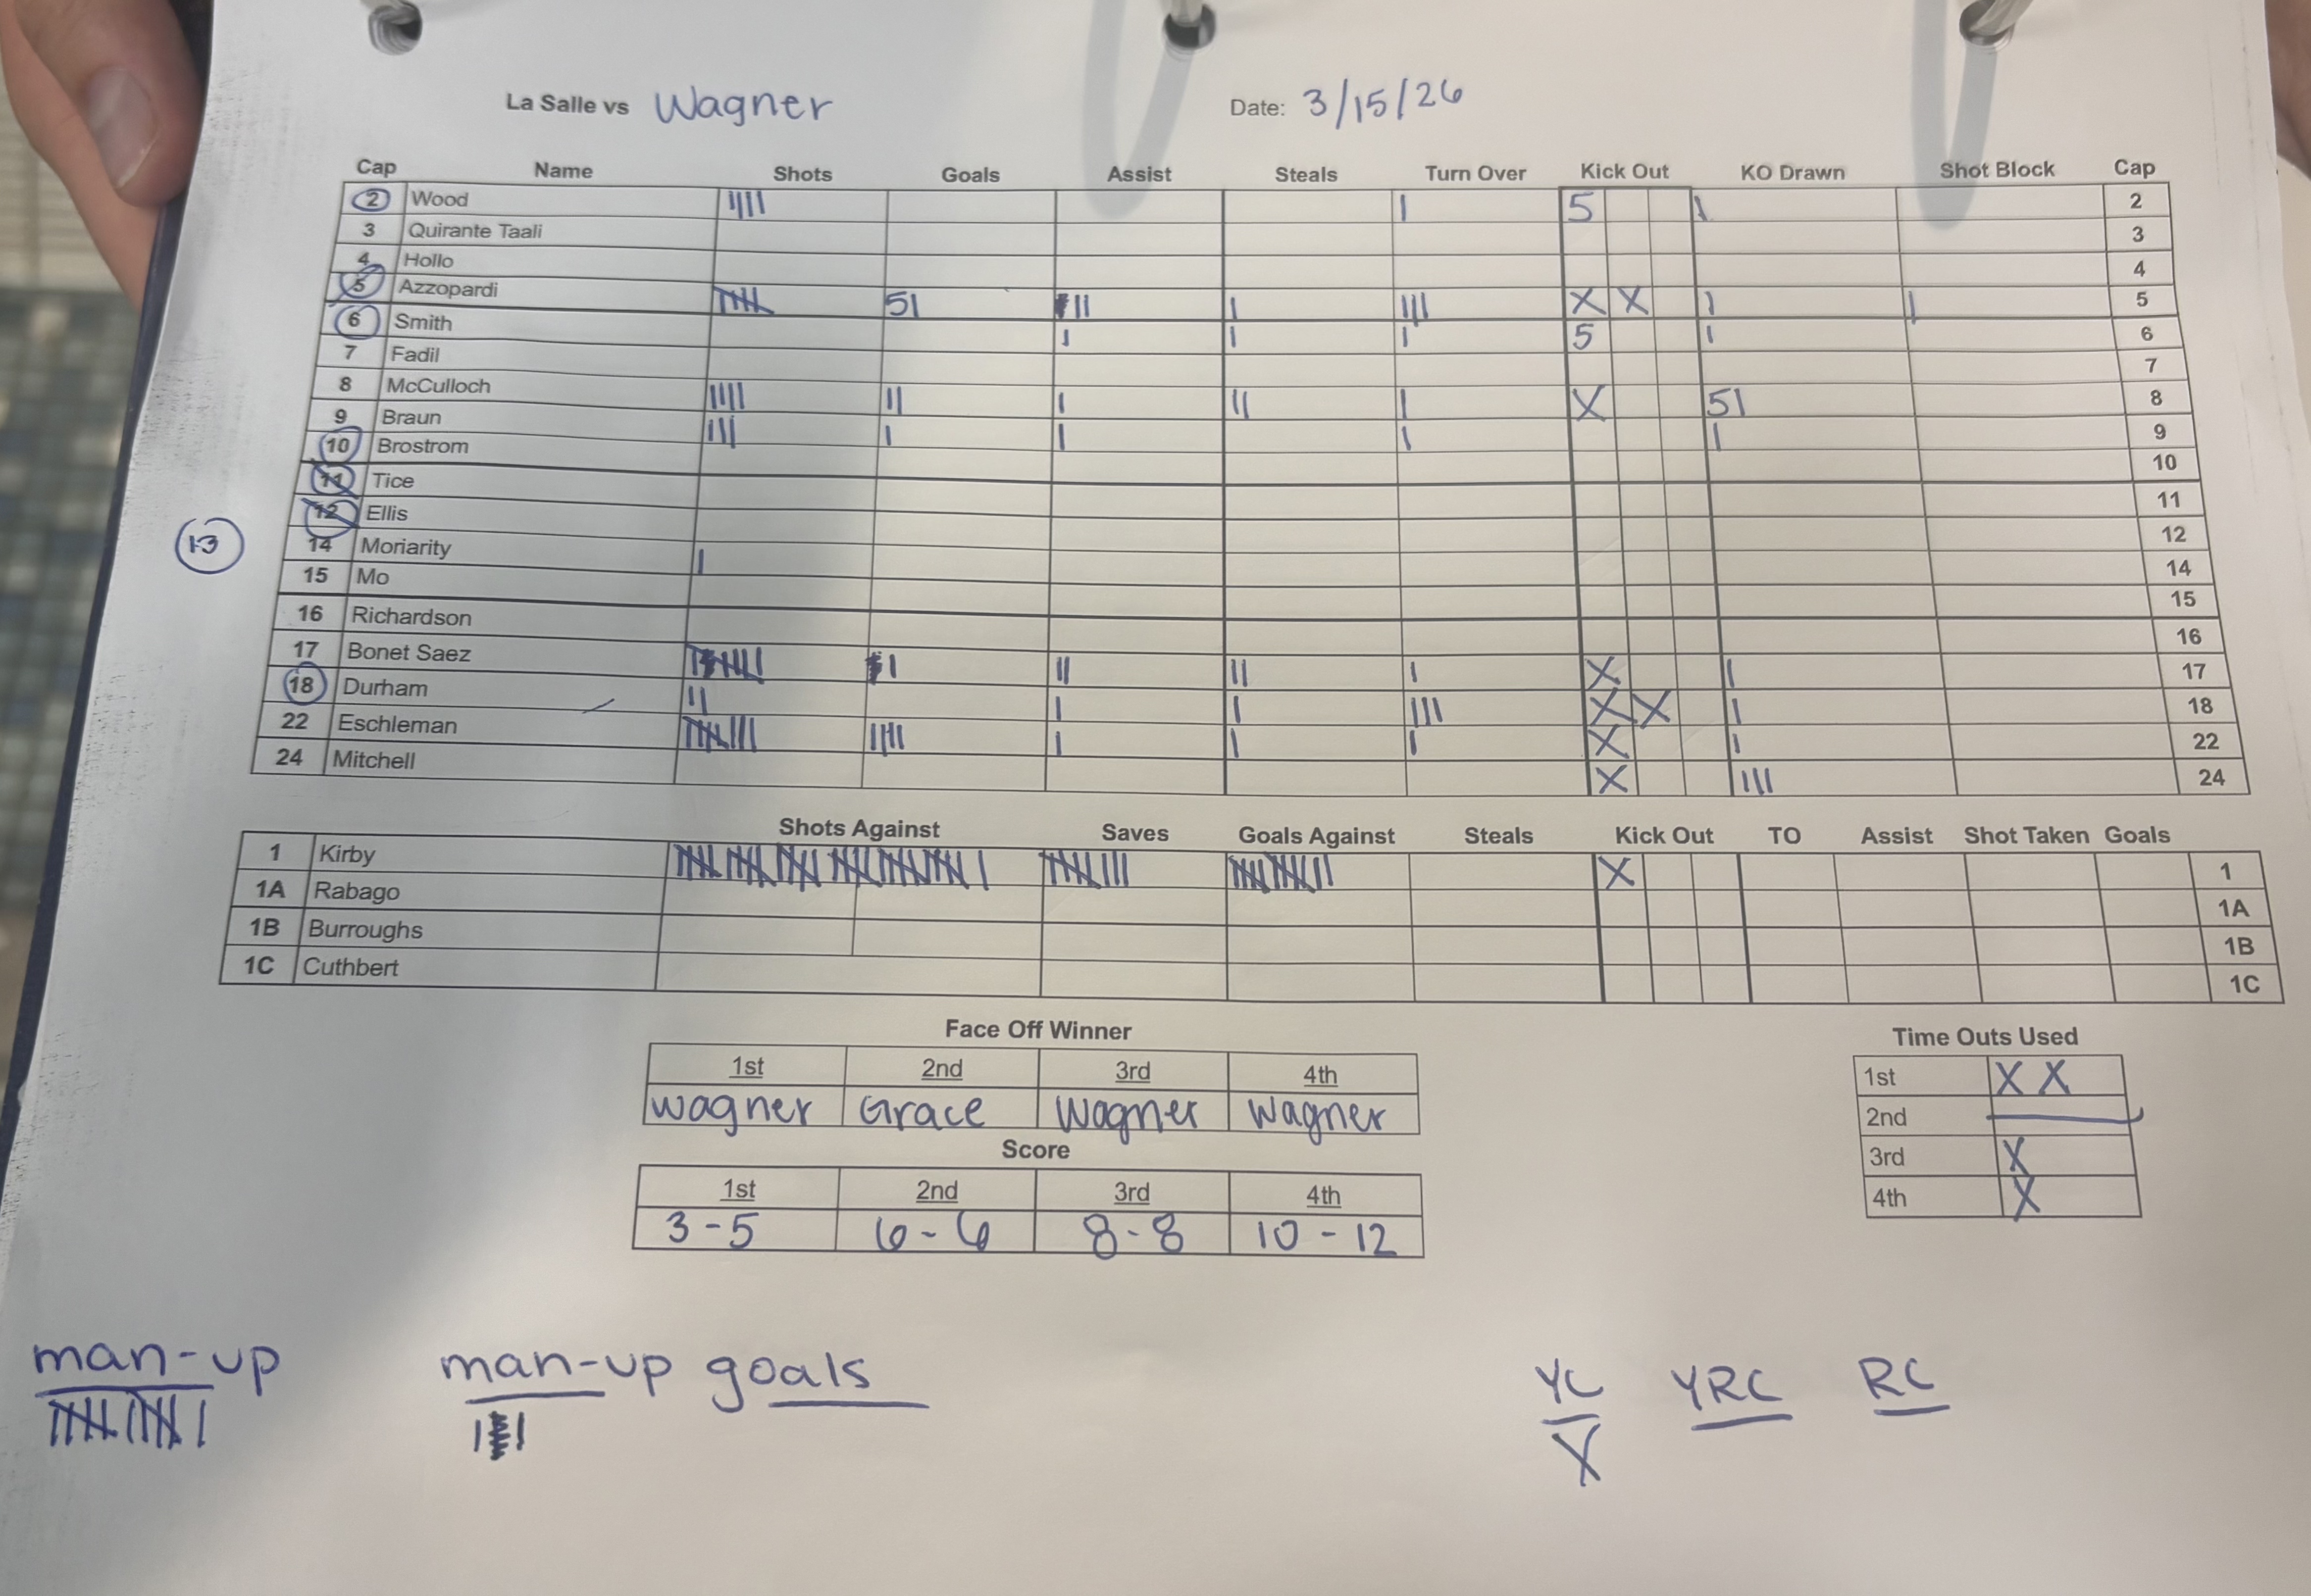 La Salle vs Wagner Date: 3/15/26
Cap Name Shots Goals Assist Steals Turn Over Kick Out KO Drawn Shot Block Cap
2 Wood |||| | 5 | 2
3 Quirante Taali 3
4 Hollo 4
5 Azzopardi 51 || | ||| X X | | 5
6 Smith | | | 5 | 6
7 Fadil 7
8 McCulloch |||| || | || | X 51 8
9 Braun ||| | | | | 9
10 Brostrom 10
11 Tice 11
12 Ellis 12
13
14 Moriarity | 14
15 Mo 15
16 Richardson 16
17 Bonet Saez | || || | X | 17
18 Durham || | | ||| X X | 18
22 Eschleman |||| | | | X | 22
24 Mitchell X ||| 24
Shots Against Saves Goals Against Steals Kick Out TO Assist Shot Taken Goals
1 Kirby X 1
1A Rabago 1A
1B Burroughs 1B
1C Cuthbert 1C
Face Off Winner
1st 2nd 3rd 4th
Wagner Grace Wagner Wagner
Score
1st 2nd 3rd 4th
3-5 6-6 8-8 10-12
Time Outs Used
1st X X
2nd
3rd X
4th X
man-up man-up goals YC YRC RC
X